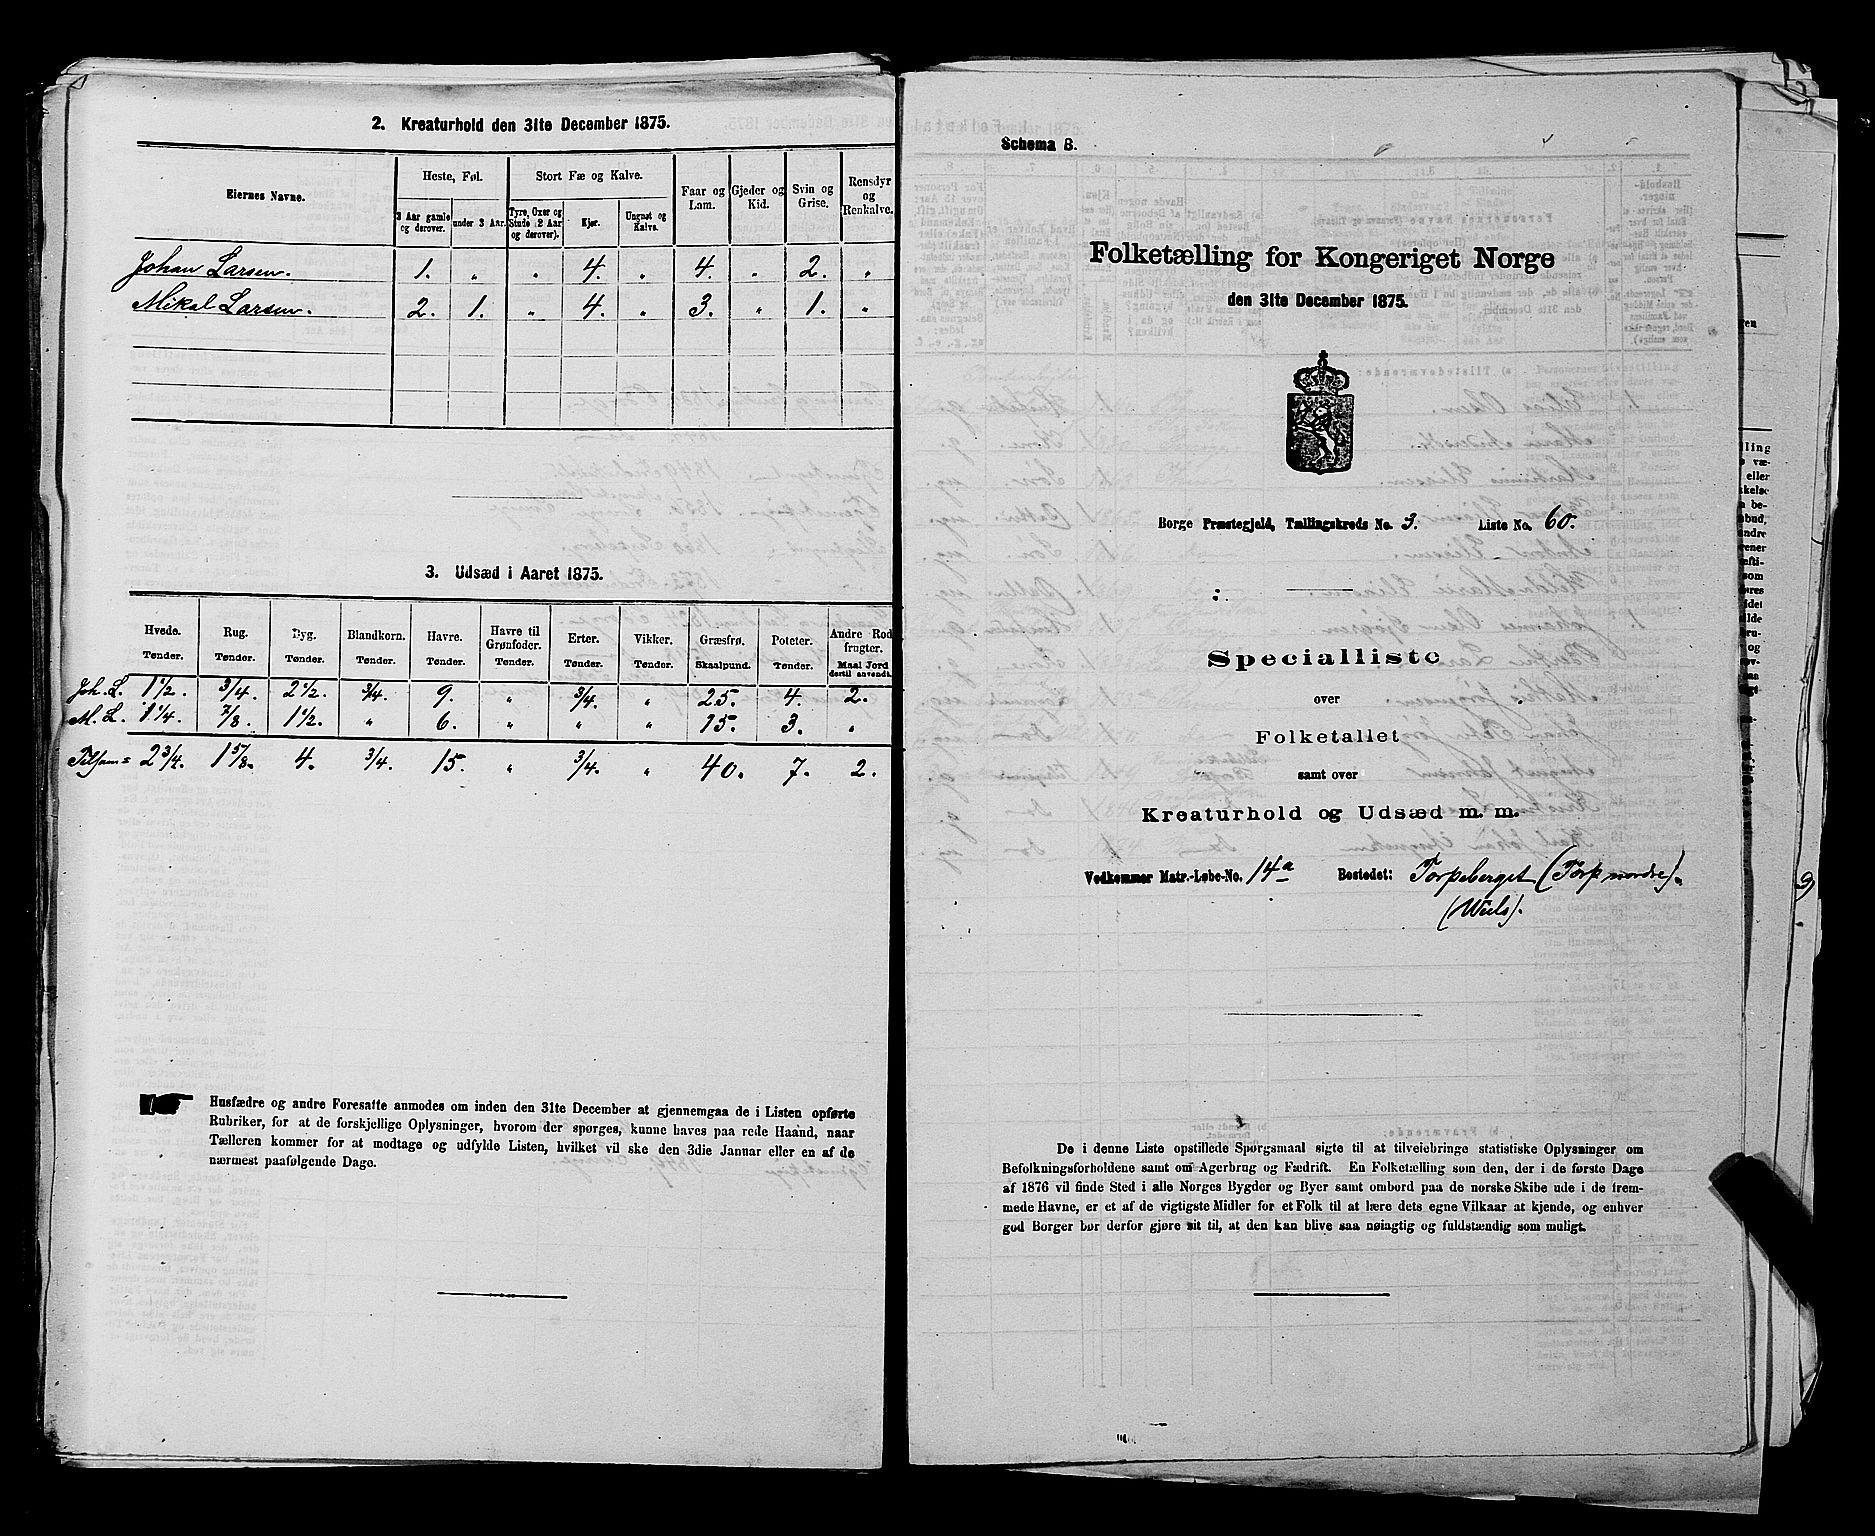 2. Kreaturhold den 31te December 1875.
Eiernes Navne.
Heste, Føl.
Stort Fæ og Kalve.
Faar og Lam.
Gjeder og Kid.
Svin og Grise.
Rensdyr og Renkalve.
3 Aar gamle og derover.
under 3 Aar.
Tyre, Oxer og Stude (2 Aar og derover).
Kjør.
Ungnøt og Kalve.
Johan Larsen. 1. " " 4. " 4. " 2. "
Mikal Larsen. 2. 1. " 4. " 3. " 1. "
3. Udsæd i Aaret 1875.
Hvede. Rug. Byg. Blandkorn. Havre. Havre til Grønfoder. Erter. Vikker. Græsfrø. Poteter. Andre Rodfrugter.
Tønder. Tønder. Tønder. Tønder. Tønder. Tønder. Tønder. Tønder. Skaalpund. Tønder. Maal Jord dertil anvendt.
Joh. L. 1 1/2. 3/4. 2 1/2. 3/4. 9. " 3/4. " 25. 4. 2.
M. L. 1 1/4. 7/8. 1 1/2. " 6. " " " 15. 3. "
Tilsam= 2 3/4. 1 5/8. 4. 3/4. 15. " 3/4. " 40. 7. 2.
Husfædre og andre Foresatte anmodes om inden den 31te December at gjennemgaa de i Listen opførte
Rubriker, for at de forskjellige Oplysninger, hvorom der spørges, kunne haves paa rede Haand, naar
Tælleren kommer for at modtage og udfylde Listen, hvilket vil ske den 3die Januar eller en af de
nærmest paafølgende Dage.
Schema B.
Folketælling for Kongeriget Norge
den 31te December 1875.
Borge Præstegjeld, Tællingskreds No. 3. Liste No. 60.
Specialliste
over
Folketallet
samt over
Kreaturhold og Udsæd m. m.
Vedkommer Matr.-Løbe-No. 14a Bostedet: Torpeberget (Torp nordre).
De i denne Liste opstillede Spørgsmaal sigte til at tilveiebringe statistiske Oplysninger om
Befolkningsforholdene samt om Agerbrug og Fædrift. En Folketælling som den, der i de første Dage
af 1876 vil finde Sted i alle Norges Bygder og Byer samt ombord paa de norske Skibe ude i de frem-
mede Havne, er et af de vigtigste Midler for et Folk til at lære dets egne Vilkaar at kjende, og enhver
god Borger bør derfor gjøre sit til, at den kan blive saa nøiagtig og fuldstændig som muligt.